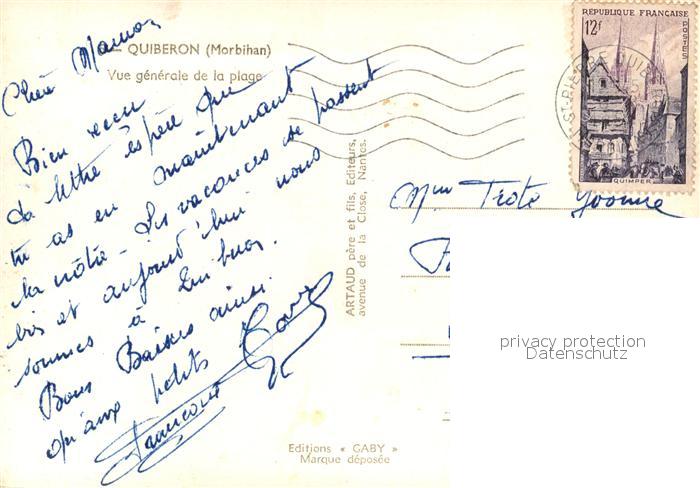 QUIBERON (Morbihan)
Vue générale de la plage
Chère Maman
Bien reçu
ta lettre espère que
tu as en maintenant
la nôtre - les vacances se passent
bien et aujourd'hui nous
sommes à Quiberon.
Bons Baisers ainsi
qu'aux petits
ARTAUD père et fils, Editeurs,
avenue de la Close, Nantes.
Editions « GABY »
Marque déposée
RÉPUBLIQUE FRANÇAISE
12f
POSTES
QUIMPER
ST-PIERRE QUIB
Mme Trote Yvonne
privacy protection
Datenschutz